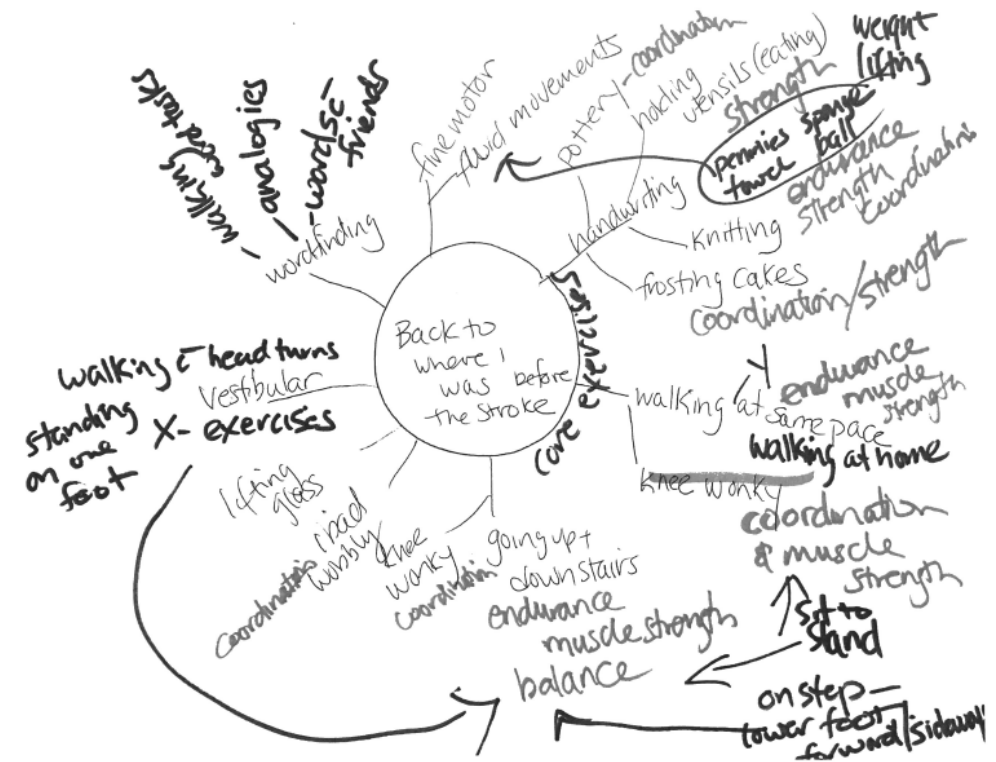 Back to
where I
was before
the stroke
core exercises
wordfinding
walking word tasks
analogies
words c
friends
fine motor
fluid movements
handwriting
pottery - coordination
holding
utensils (eating)
strength
weight
lifting
pennies sponge
towel ball
endurance
strength
coordination
knitting
frosting cakes
coordination/strength
walking at same pace
endurance
muscle
strength
walking at home
knee wonky
coordination
& muscle
strength
sit to
stand
on step -
lower foot
forward/sideways
going up +
down stairs
endurance
muscle strength
balance
knee
wonky
coordination
lifting
glass
wobbly
coordination
vestibular
walking c head turns
X - exercises
standing
on one
foot